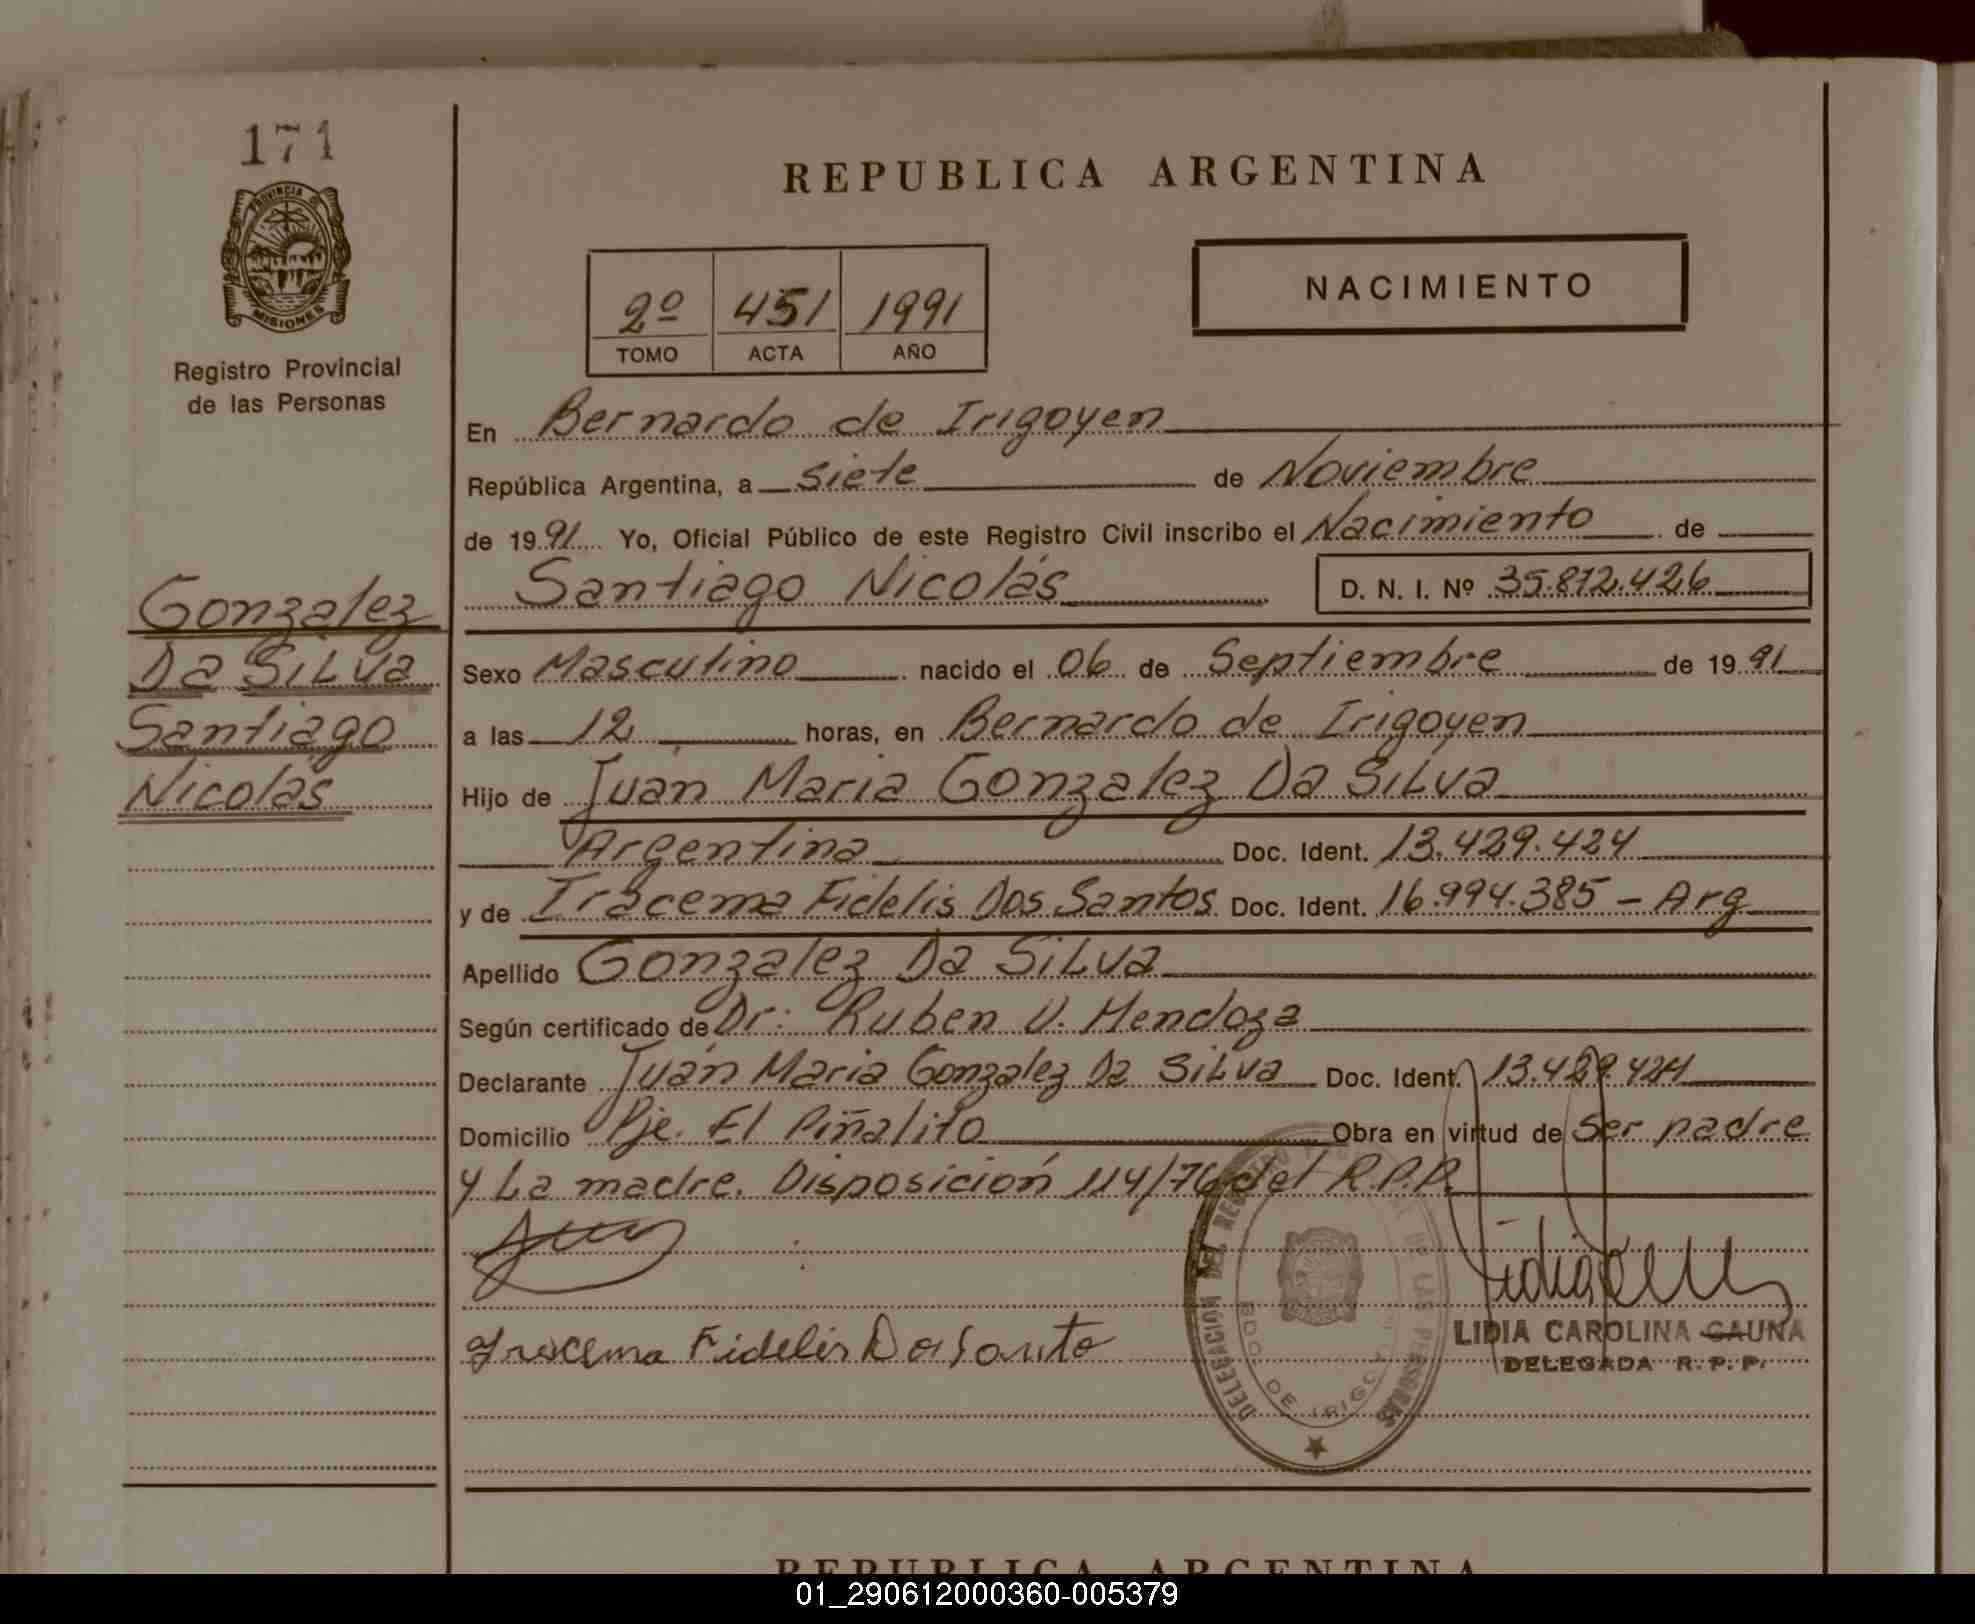 171
PROVINCIA DE
MISIONES
Registro Provincial
de las Personas
Gonzalez
Da Silva
Santiago
Nicolás
REPUBLICA ARGENTINA
2º 451 1991
TOMO ACTA AÑO
NACIMIENTO
En Bernardo de Irigoyen
República Argentina, a siete de Noviembre
de 1991 Yo, Oficial Público de este Registro Civil inscribo el Nacimiento de
Santiago Nicolás D. N. I. Nº 35.812.426
Sexo Masculino nacido el 06 de Septiembre de 1991
a las 12 horas, en Bernardo de Irigoyen
Hijo de Juan Maria Gonzalez Da Silva
Argentina Doc. Ident. 13.429.424
y de Iracema Fidelis Dos Santos Doc. Ident. 16.994.385 - Arg
Apellido Gonzalez Da Silva
Según certificado de Dr: Ruben V. Mendoza
Declarante Juan Maria Gonzalez Da Silva Doc. Ident. 13.429.424
Domicilio Pje. El Piñalito Obra en virtud de ser padre
y La madre. Disposición 114/76 del R.P.P.
Iracema Fidelis Dos Santo
DELEGACION DEL REGISTRO PROVINCIAL DE LAS PERSONAS
BDO. DE IRIGOYEN
LIDIA CAROLINA GAUNA
DELEGADA R. P. P.
REPUBLICA ARGENTINA
01_290612000360-005379